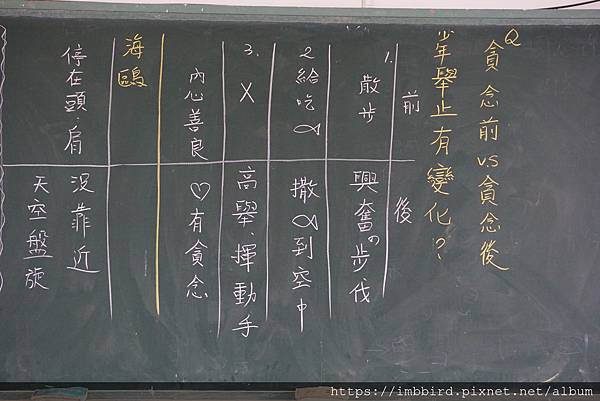 Q 貪念前 v.s 貪念後
少年舉止有變化?
前
後
1. 散步
興奮的步伐
2 給吃魚
撒魚到空中
3. X
高舉.揮動手
內心善良
♡有貪念
海鷗
停在頭.肩
沒靠近
天空盤旋
https://imbbird.pixnet.net/album